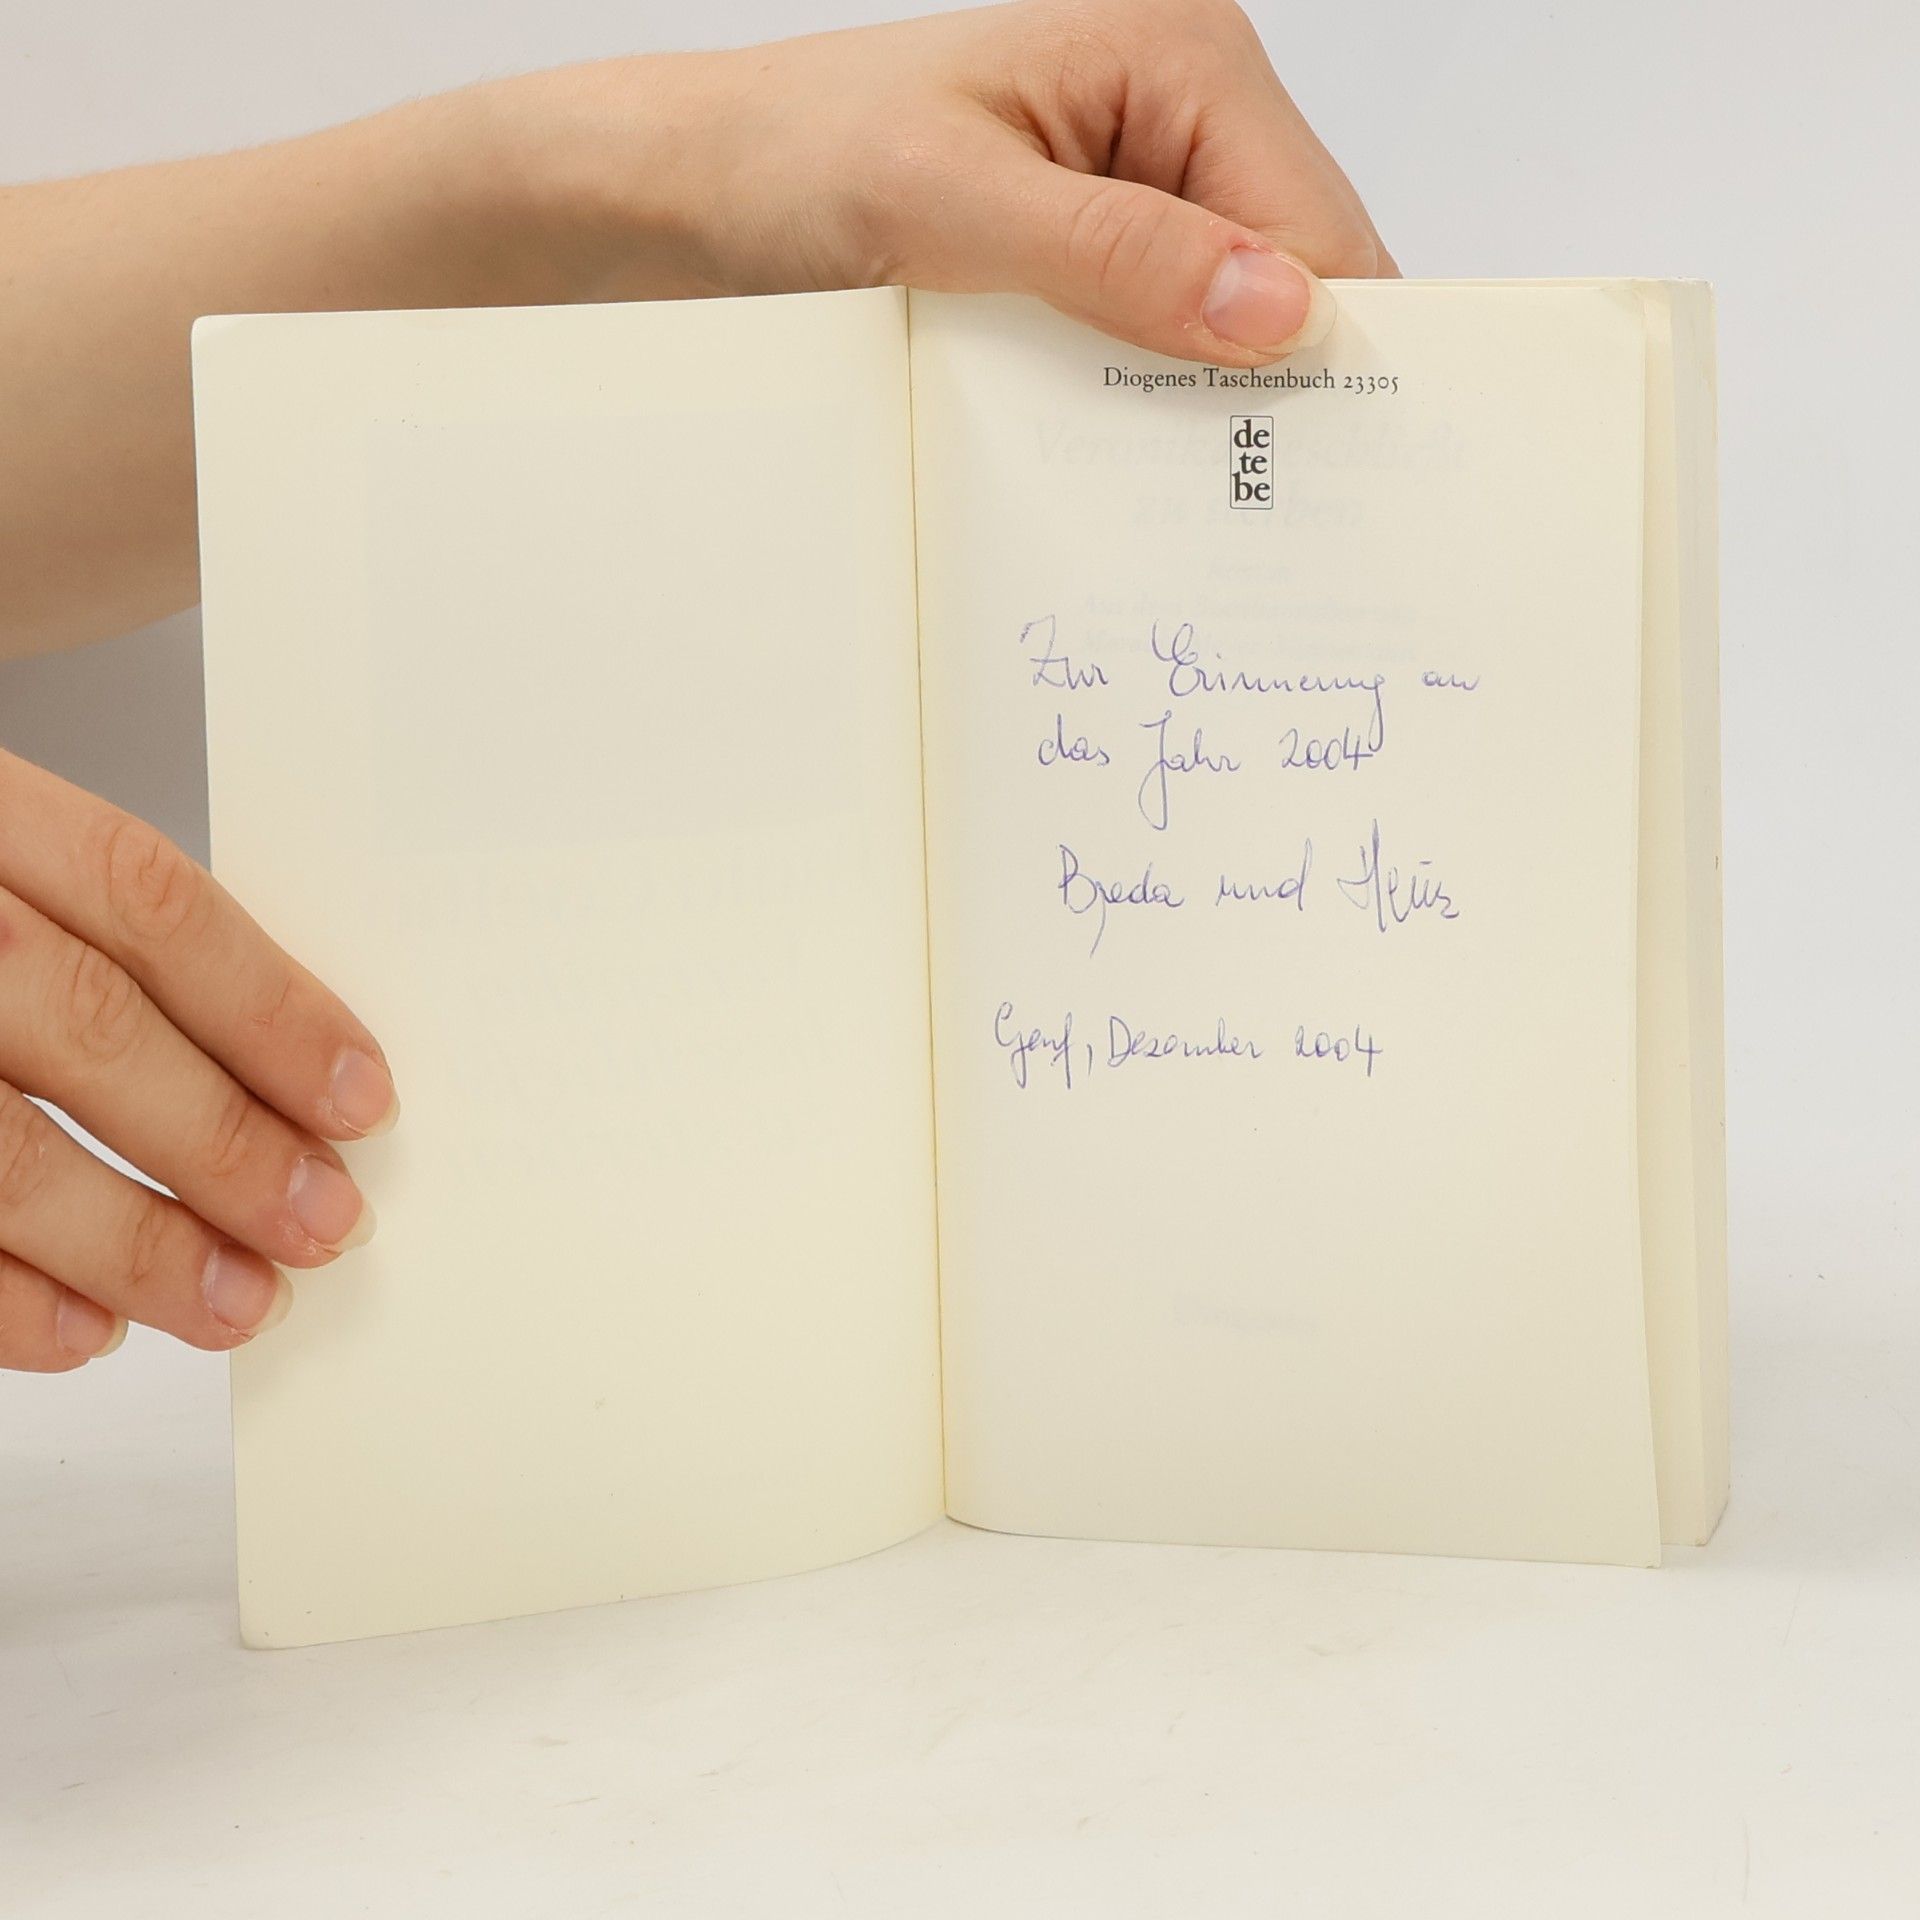 Diogenes Taschenbuch 23305
de
te
be
Zur Erinnerung an
das Jahr 2004
Breda und Heinz
Genf, Dezember 2004